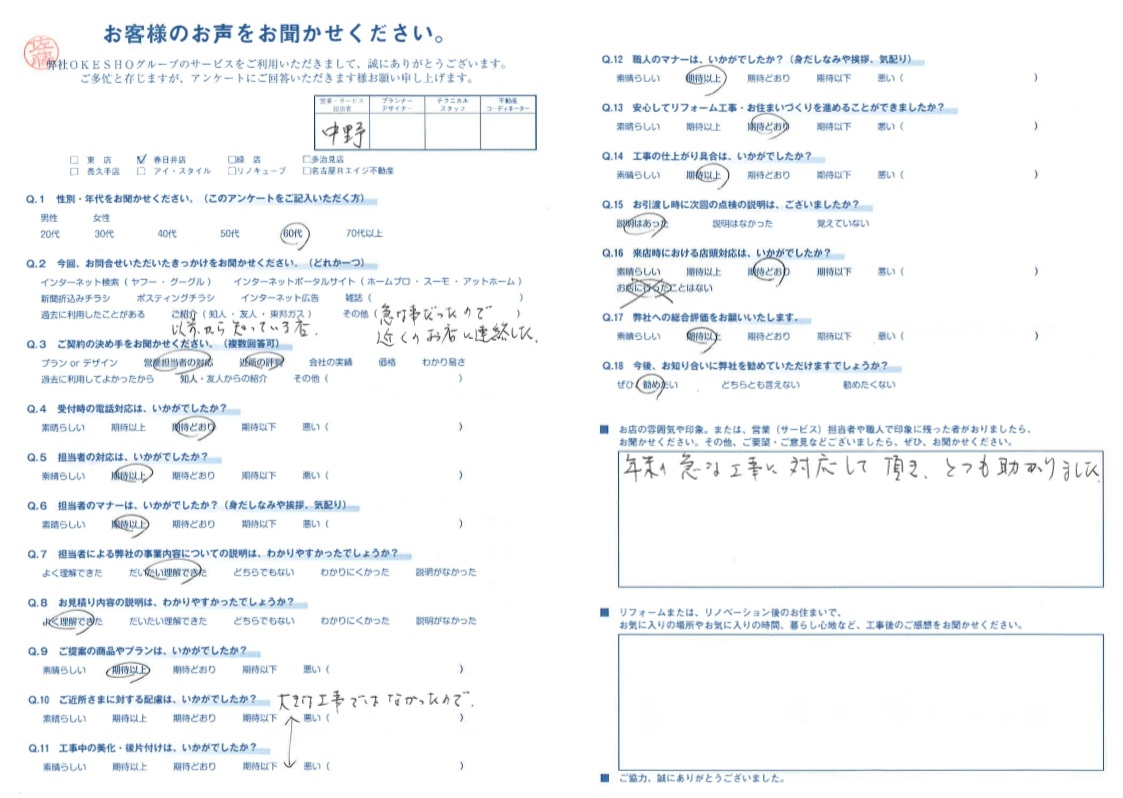 お客様のお声をお聞かせください。
佐藤
弊社ＯＫＥＳＨＯグループのサービスをご利用いただきまして、誠にありがとうございます。
ご多忙と存じますが、アンケートにご回答いただきます様お願い申し上げます。
営業・サービス担当者 プランナーデザイナー テクニカルスタッフ 不動産コーディネーター
中野
□ 東 店 ☑ 春日井店 □緑 店 □多治見店
□ 長久手店 □ アイ・スタイル □リノキューブ □名古屋Rエイジ不動産
Q.1 性別・年代をお聞かせください。（このアンケートをご記入いただく方）
男性 女性
20代 30代 40代 50代 60代 70代以上
Q.2 今回、お問合せいただいたきっかけをお聞かせください。（どれか一つ）
インターネット検索（ ヤフー ・ グーグル ） インターネットポータルサイト（ ホームプロ ・ スーモ ・ アットホーム ）
新聞折込みチラシ ポスティングチラシ インターネット広告 雑誌（ ）
過去に利用したことがある ご紹介（ 知人 ・ 友人 ・ 東邦ガス ） その他（ 急な事だったので ）
以前から知っている店. 近くのお店に連絡した.
Q.3 ご契約の決め手をお聞かせください。（複数回答可）
プラン or デザイン 営業担当者の対応 近所の評判 会社の実績 価格 わかり易さ
過去に利用してよかったから 知人・友人からの紹介 その他（ ）
Q.4 受付時の電話対応は、いかがでしたか？
素晴らしい 期待以上 期待どおり 期待以下 悪い（ ）
Q.5 担当者の対応は、いかがでしたか？
素晴らしい 期待以上 期待どおり 期待以下 悪い（ ）
Q.6 担当者のマナーは、いかがでしたか？（身だしなみや挨拶、気配り）
素晴らしい 期待以上 期待どおり 期待以下 悪い（ ）
Q.7 担当者による弊社の事業内容についての説明は、わかりやすかったでしょうか？
よく理解できた だいたい理解できた どちらでもない わかりにくかった 説明がなかった
Q.8 お見積り内容の説明は、わかりやすかったでしょうか？
よく理解できた だいたい理解できた どちらでもない わかりにくかった 説明がなかった
Q.9 ご提案の商品やプランは、いかがでしたか？
素晴らしい 期待以上 期待どおり 期待以下 悪い（ ）
Q.10 ご近所さまに対する配慮は、いかがでしたか？ 大きな工事ではなかったので.
素晴らしい 期待以上 期待どおり 期待以下 悪い（ ）
Q.11 工事中の美化・後片付けは、いかがでしたか？
素晴らしい 期待以上 期待どおり 期待以下 悪い（ ）
Q.12 職人のマナーは、いかがでしたか？（身だしなみや挨拶、気配り）
素晴らしい 期待以上 期待どおり 期待以下 悪い（ ）
Q.13 安心してリフォーム工事・お住まいづくりを進めることができましたか？
素晴らしい 期待以上 期待どおり 期待以下 悪い（ ）
Q.14 工事の仕上がり具合は、いかがでしたか？
素晴らしい 期待以上 期待どおり 期待以下 悪い（ ）
Q.15 お引渡し時に次回の点検の説明は、ございましたか？
説明はあった 説明はなかった 覚えていない
Q.16 来店時における店頭対応は、いかがでしたか？
素晴らしい 期待以上 期待どおり 期待以下 悪い（ ）
お店に行ったことはない
Q.17 弊社への総合評価をお願いいたします。
素晴らしい 期待以上 期待どおり 期待以下 悪い（ ）
Q.18 今後、お知り合いに弊社を勧めていただけますでしょうか？
ぜひ勧めたい どちらとも言えない 勧めたくない
■ お店の雰囲気や印象。または、営業（サービス）担当者や職人で印象に残った者がおりましたら、
お聞かせください。その他、ご要望・ご意見などございましたら、ぜひ、お聞かせください。
年末の急な工事に対応して頂き、とても助かりました.
■ リフォームまたは、リノベーション後のお住まいで、
お気に入りの場所やお気に入りの時間、暮らし心地など、工事後のご感想をお聞かせください。
■ ご協力、誠にありがとうございました。